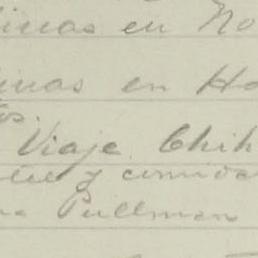 inas en No
inas en Ho
tos.
Viaje Chih
tel y comida
Pullman